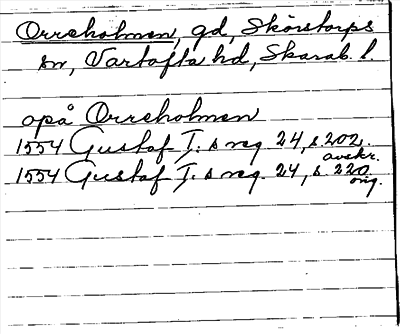 Orreholmen, gd, Skörstorps
sn, Vartofta hd, Skarab. l.
opå Orreholmen
1554 Gustaf I:s reg. 24, s 202.
avskr.
1554 Gustaf I:s reg. 24, s. 220.
orig.